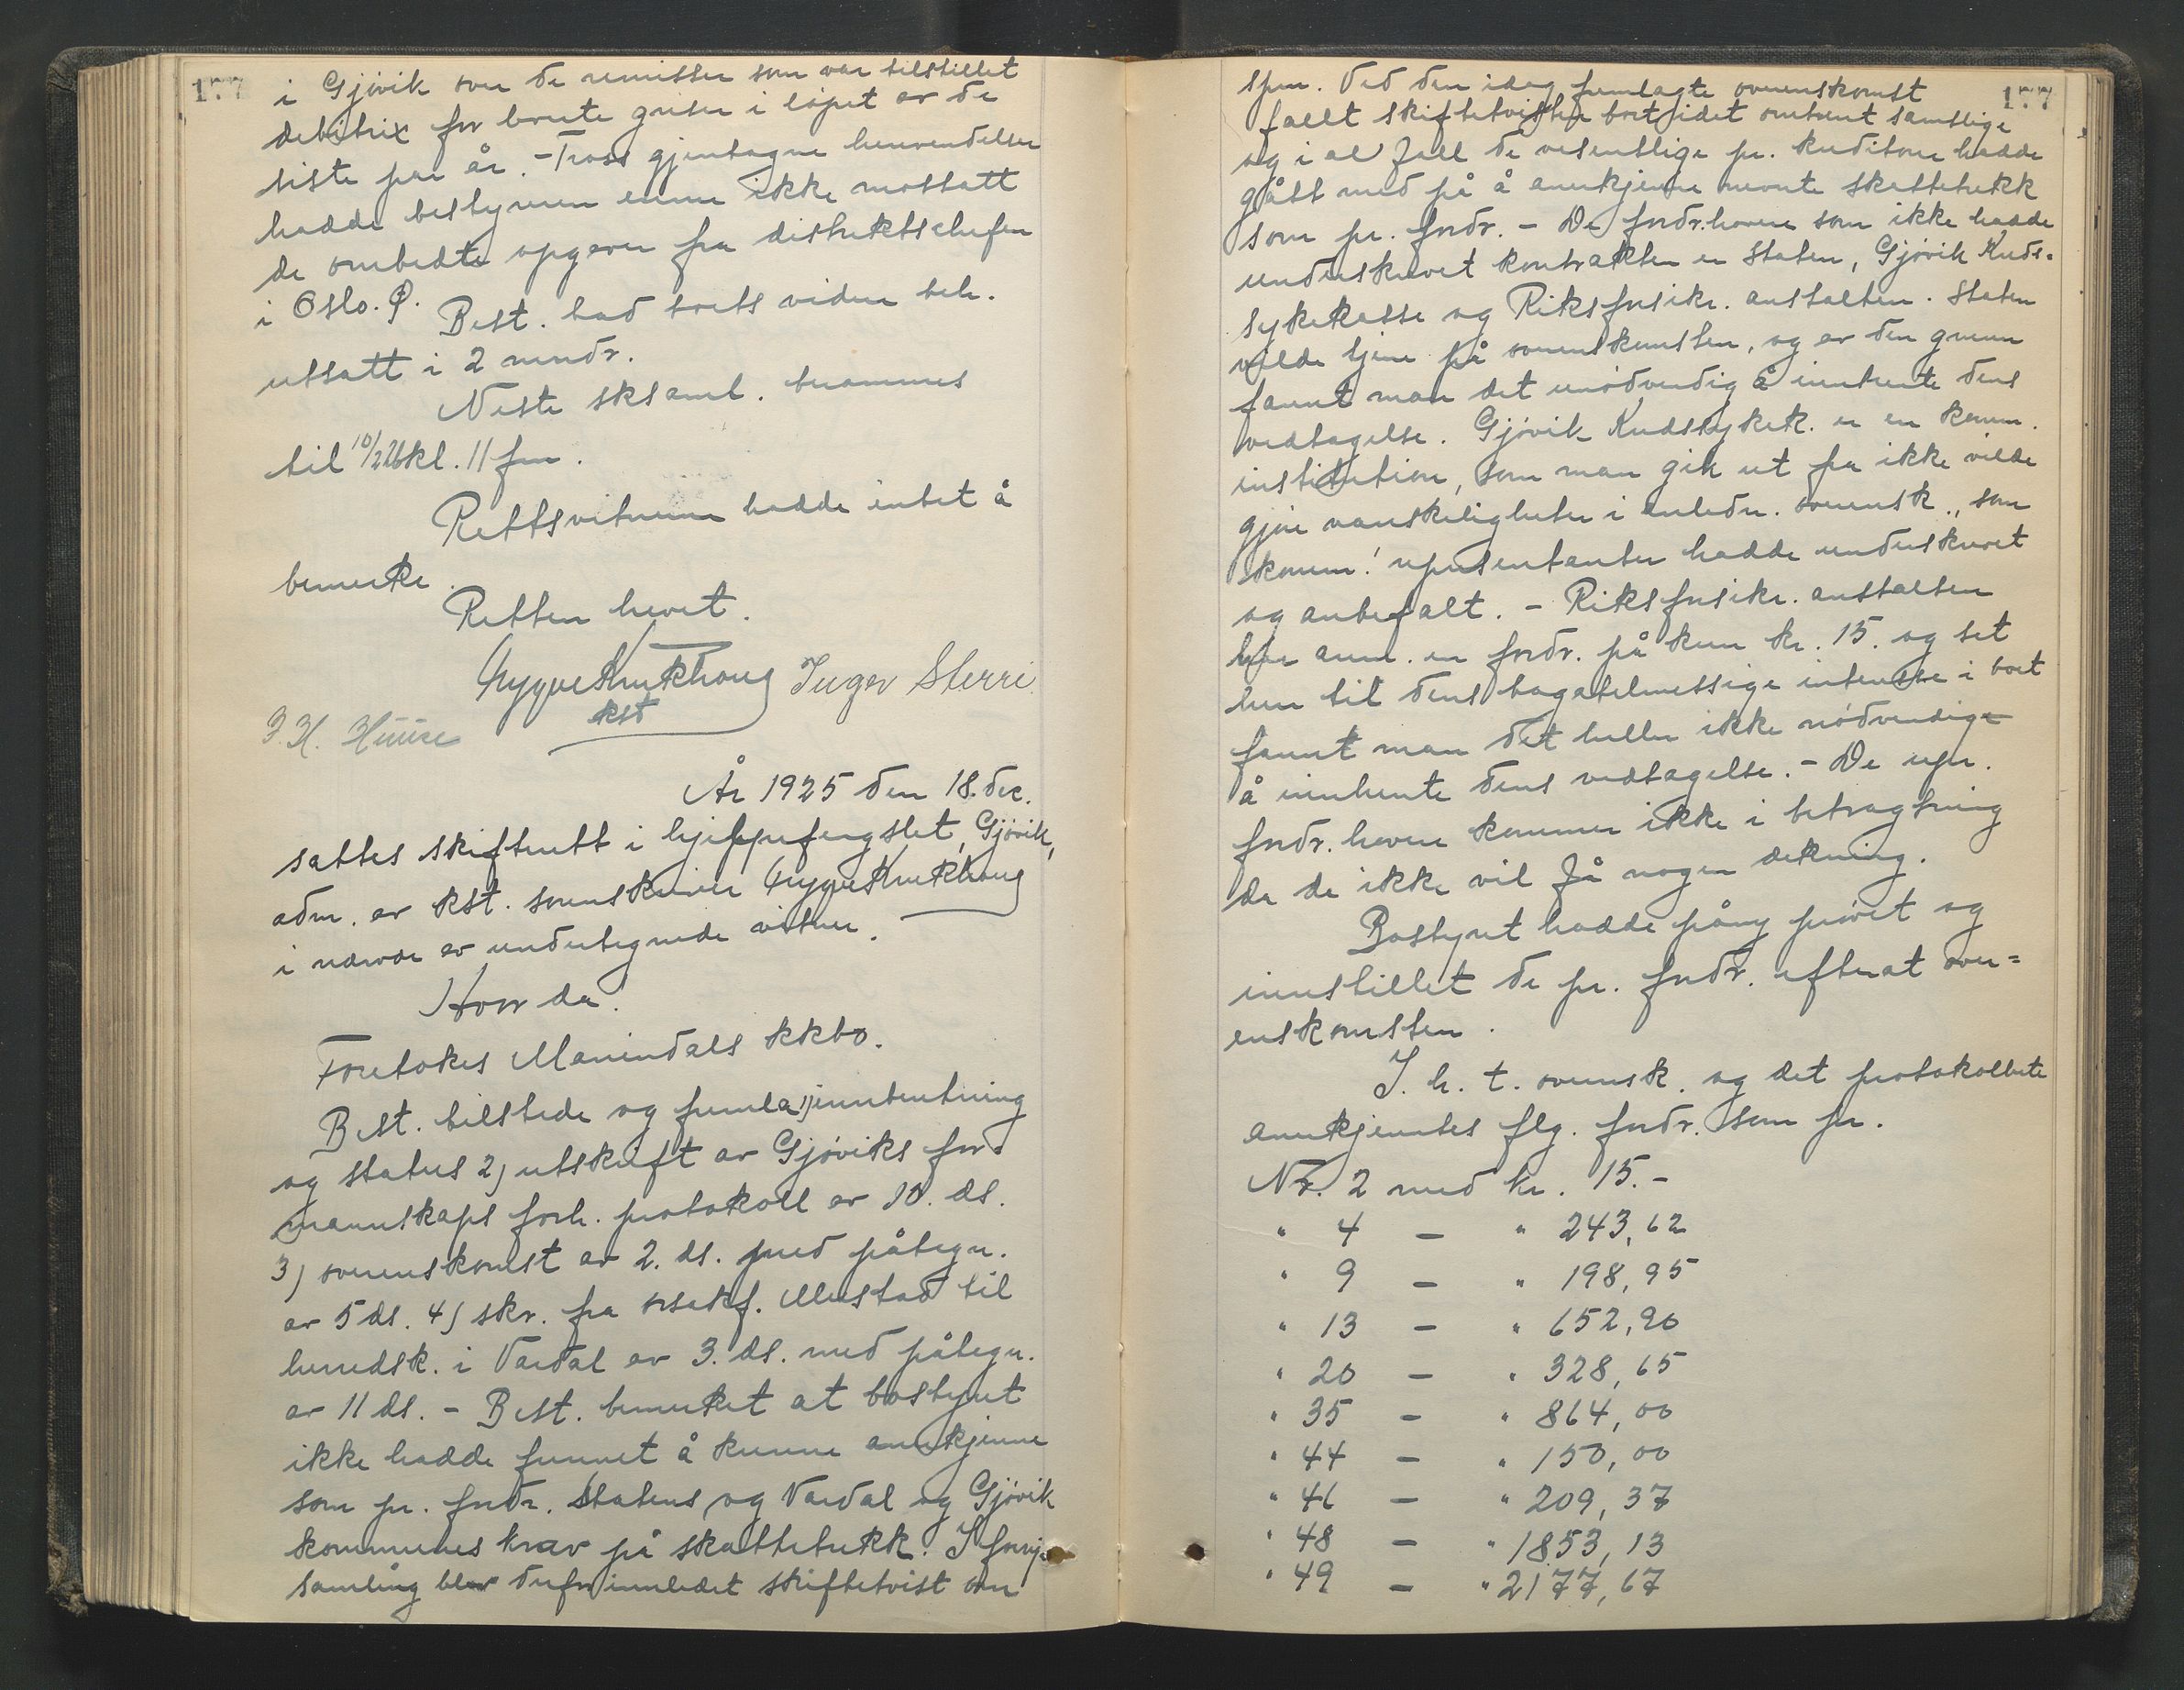 177
i Gjøvik over de remisser som var tilstillet
debitrix for brente griser i løpet av de
siste par år. - Tross gjentagne henvendelser
hadde bestyreren ennu ikke mottatt
de ombedte opgaver fra distriktschefen
i Oslo.
Best. bad boets videre beh.
utsatt i 2 mndr.
Neste sksaml. berammes
til 10/2 26 kl. 11 fm.
Rettsvitnene hadde intet å
bemerke.
Retten hevet.
Trygve Krukhoug Inger Sterri
kst
J. H. Huuse
År 1925 den 18. dec.
sattes skifterett i hjelpefengslet, Gjøvik,
adm. av kst. sorenskriver Trygve Krukhoug
i nærvær av undertegnede vitner.
Hvor da:
Foretokes Marindals kkbo.
Best. tilstede og fremla 1) innberetning
og status 2) utskrift av Gjøviks for-
mannskaps forh. protokoll av 10. ds.
3) overenskomst av 2. ds. med påtegn.
av 5 ds. 4) skr. fra orsakf. Mustad til
herredsk. i Vardal av 3. ds. med påtegn.
av 11 ds. - Best. bemerket at bostyret
ikke hadde funnet å kunne anerkjenne
som pr. fordr. Statens og Vardal og Gjøvik
kommunes krav på skattetrekk. I forrige
samling blev derfor innledet skiftetvist om
177
spm. Ved den idag fremlagte overenskomst
fallt skiftetvisten bort idet omtrent samtlige
og i al fall de vesentlige pr. kreditorer hadde
gått med på å anerkjenne nevnte skattetrekk
som pr. fordr. - De fordr.havere som ikke hadde
underskrevet kontrakten er Staten, Gjøvik Kreds-
sykekasse og Riksforsikr. anstalten. Staten
vilde tjene på overenskomsten, og av den grunn
fannt man det unødvendig å innhente dens
vedtagelse. Gjøvik Kredssykek. er en komm.
institution, som man gik ut fra ikke vilde
gjøre vanskeligheter i anledn. overensk., som
komm. representanter hadde underskrevet
og anbefalt. - Riksforsikr. anstalten
har anm. en fordr. på kun kr. 15. og set
hen til dens bagatelmessige interesse i boet
fannt man det heller ikke nødvendig
å innhente dens vedtagelse. - De upr.
fordr. havere kommer ikke i betragtning
da de ikke vil få nogen dekning.
Bostyret hadde påny prøvet og
innstillet de pr. fordr. efterat over-
enskomsten.
I. h. t. overensk. og det protokollerte
anerkjentes flg. fordr. som pr.
Nr. 2 med kr. 15.-
" 4 - " 243,62
" 9 - " 198,95
" 13 - " 652,90
" 20 - " 328,65
" 35 - " 864,00
" 44 - " 150,00
" 46 - " 209,37
" 48 - " 1853,13
" 49 - " 2177,67